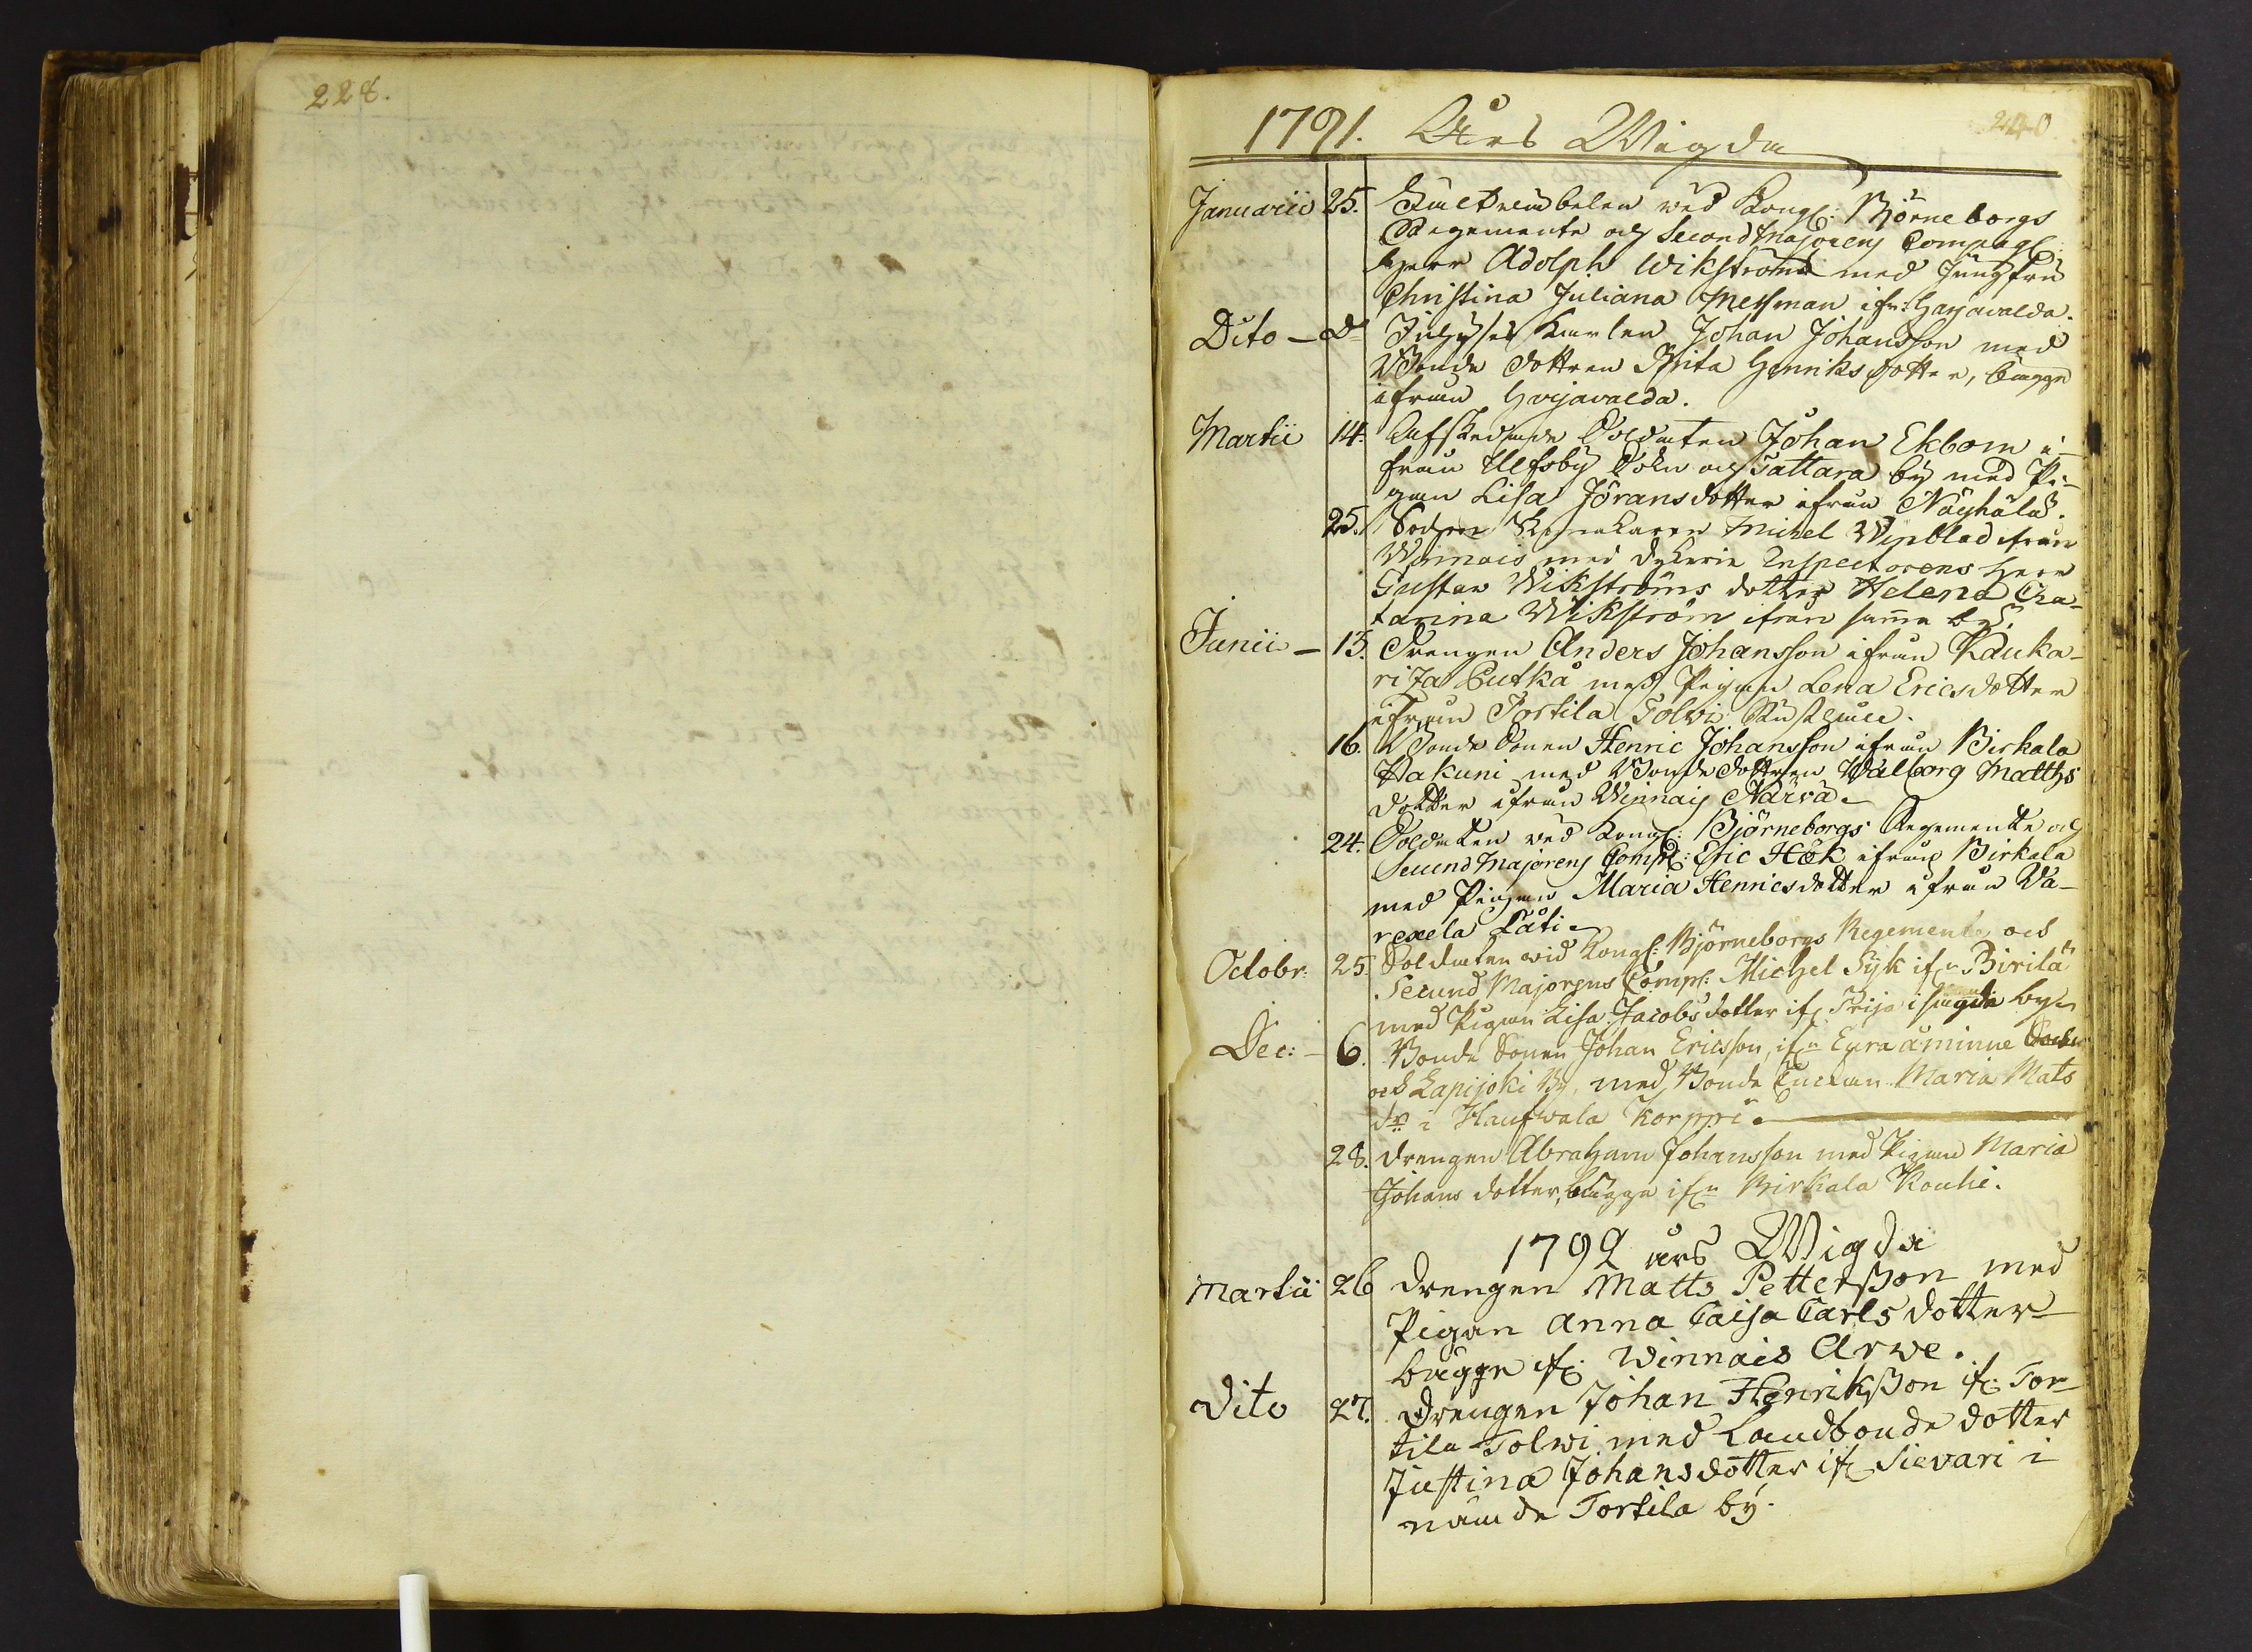 228.
240
1791. Års Wigda
Januarii 25. wid Kongl: Björneborgs
Regemente och Second Majorens Compagl:
Herr Adolph Wikström med Jungfru
Christina Juliana Messman ifr: Harjavalda.
Dito - D Inhyses Karlen Johan Johansson med
Bonde dottren Brita Henriksdotter, bägge
ifrån Harjavalda.
Martii 14. Afskedade Soldaten Johan Ekbom i-
från Ulfsby Sokn och Tattara by med Pi-
gan Lisa Jöransdotter ifrån Näyhälä.
25. Sochne Michel Winblad ifrån
Winnais med Inspectorens Herr
Gustav Wikströms dotter Helena Cha-
tarina Wikström ifrån samma by.
Junii - 13. Drengen Anders Johansson ifrån Kauka-
ri Ja Putka med Pigan Lena Ericsdotter
ifrån Torttila Tolwi
16. Bonde Sonen Henric Johansson ifrån Birkala
Hakuni med Bonde dottren Walborg Matths
dotter ifrån Winnais Närvä
24. Soldaten wid Kongl: Björneborgs Regemente och
Secund Majorens Compl: Eric Höök ifrån Birkala
med Pigan Maria Henricsdotter ifrån Wa-
reaela Läti
Octobr: 25. Soldaten wid Kongl: Björneborgs Regemente och
Secund Majorens Compl: Michel Syk ifn Pirilä
med Pigan Lisa Jacobsdotter ifr: Prija i by
Dec: - 6. Bonde Sonen Johan Ericsson, ifn Eura åminne Sockn
och Lapijoki By, med Bonde Enckan Maria Mats
dr i Haufwala Korppi
28. drengen Abraham Johansson med Pigan Maria
Johans dotter, bägge ifn Birkala Kouhi.
1792 års Wigda
Martii 26 drengen Matts Petterßon med
Pigan Anna Caisa Carls dotter
bägge ifr: Winnais Arwe.
Dito 27. Drengen Johan Henrikßon ifr: Tor-
tila Tolwi med Landbonde dotter
Justina Johansdotter ifr: Sievari i
nämde Tortila by.